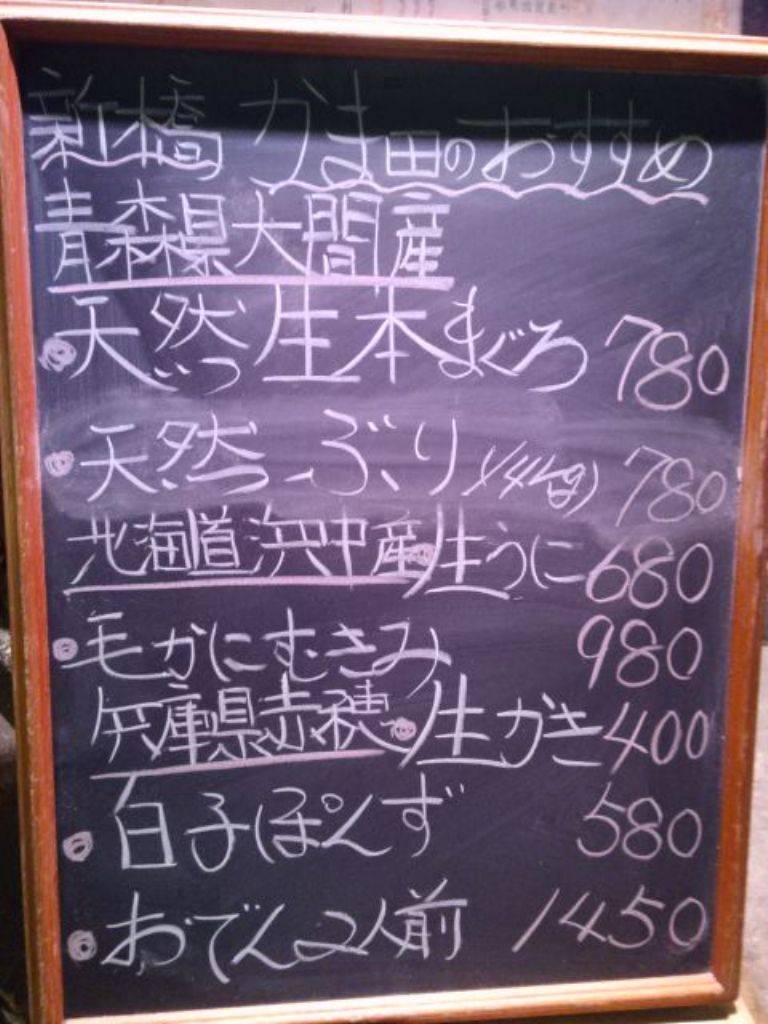 新橋 かま田のおすすめ
青森県大間産
天然生本まぐろ 780
天然ぶり(14kg) 780
北海道浜中産生うに 680
毛がにむきみ 980
兵庫県赤穂生がき 400
白子ぽんず 580
おでん2人前 1450